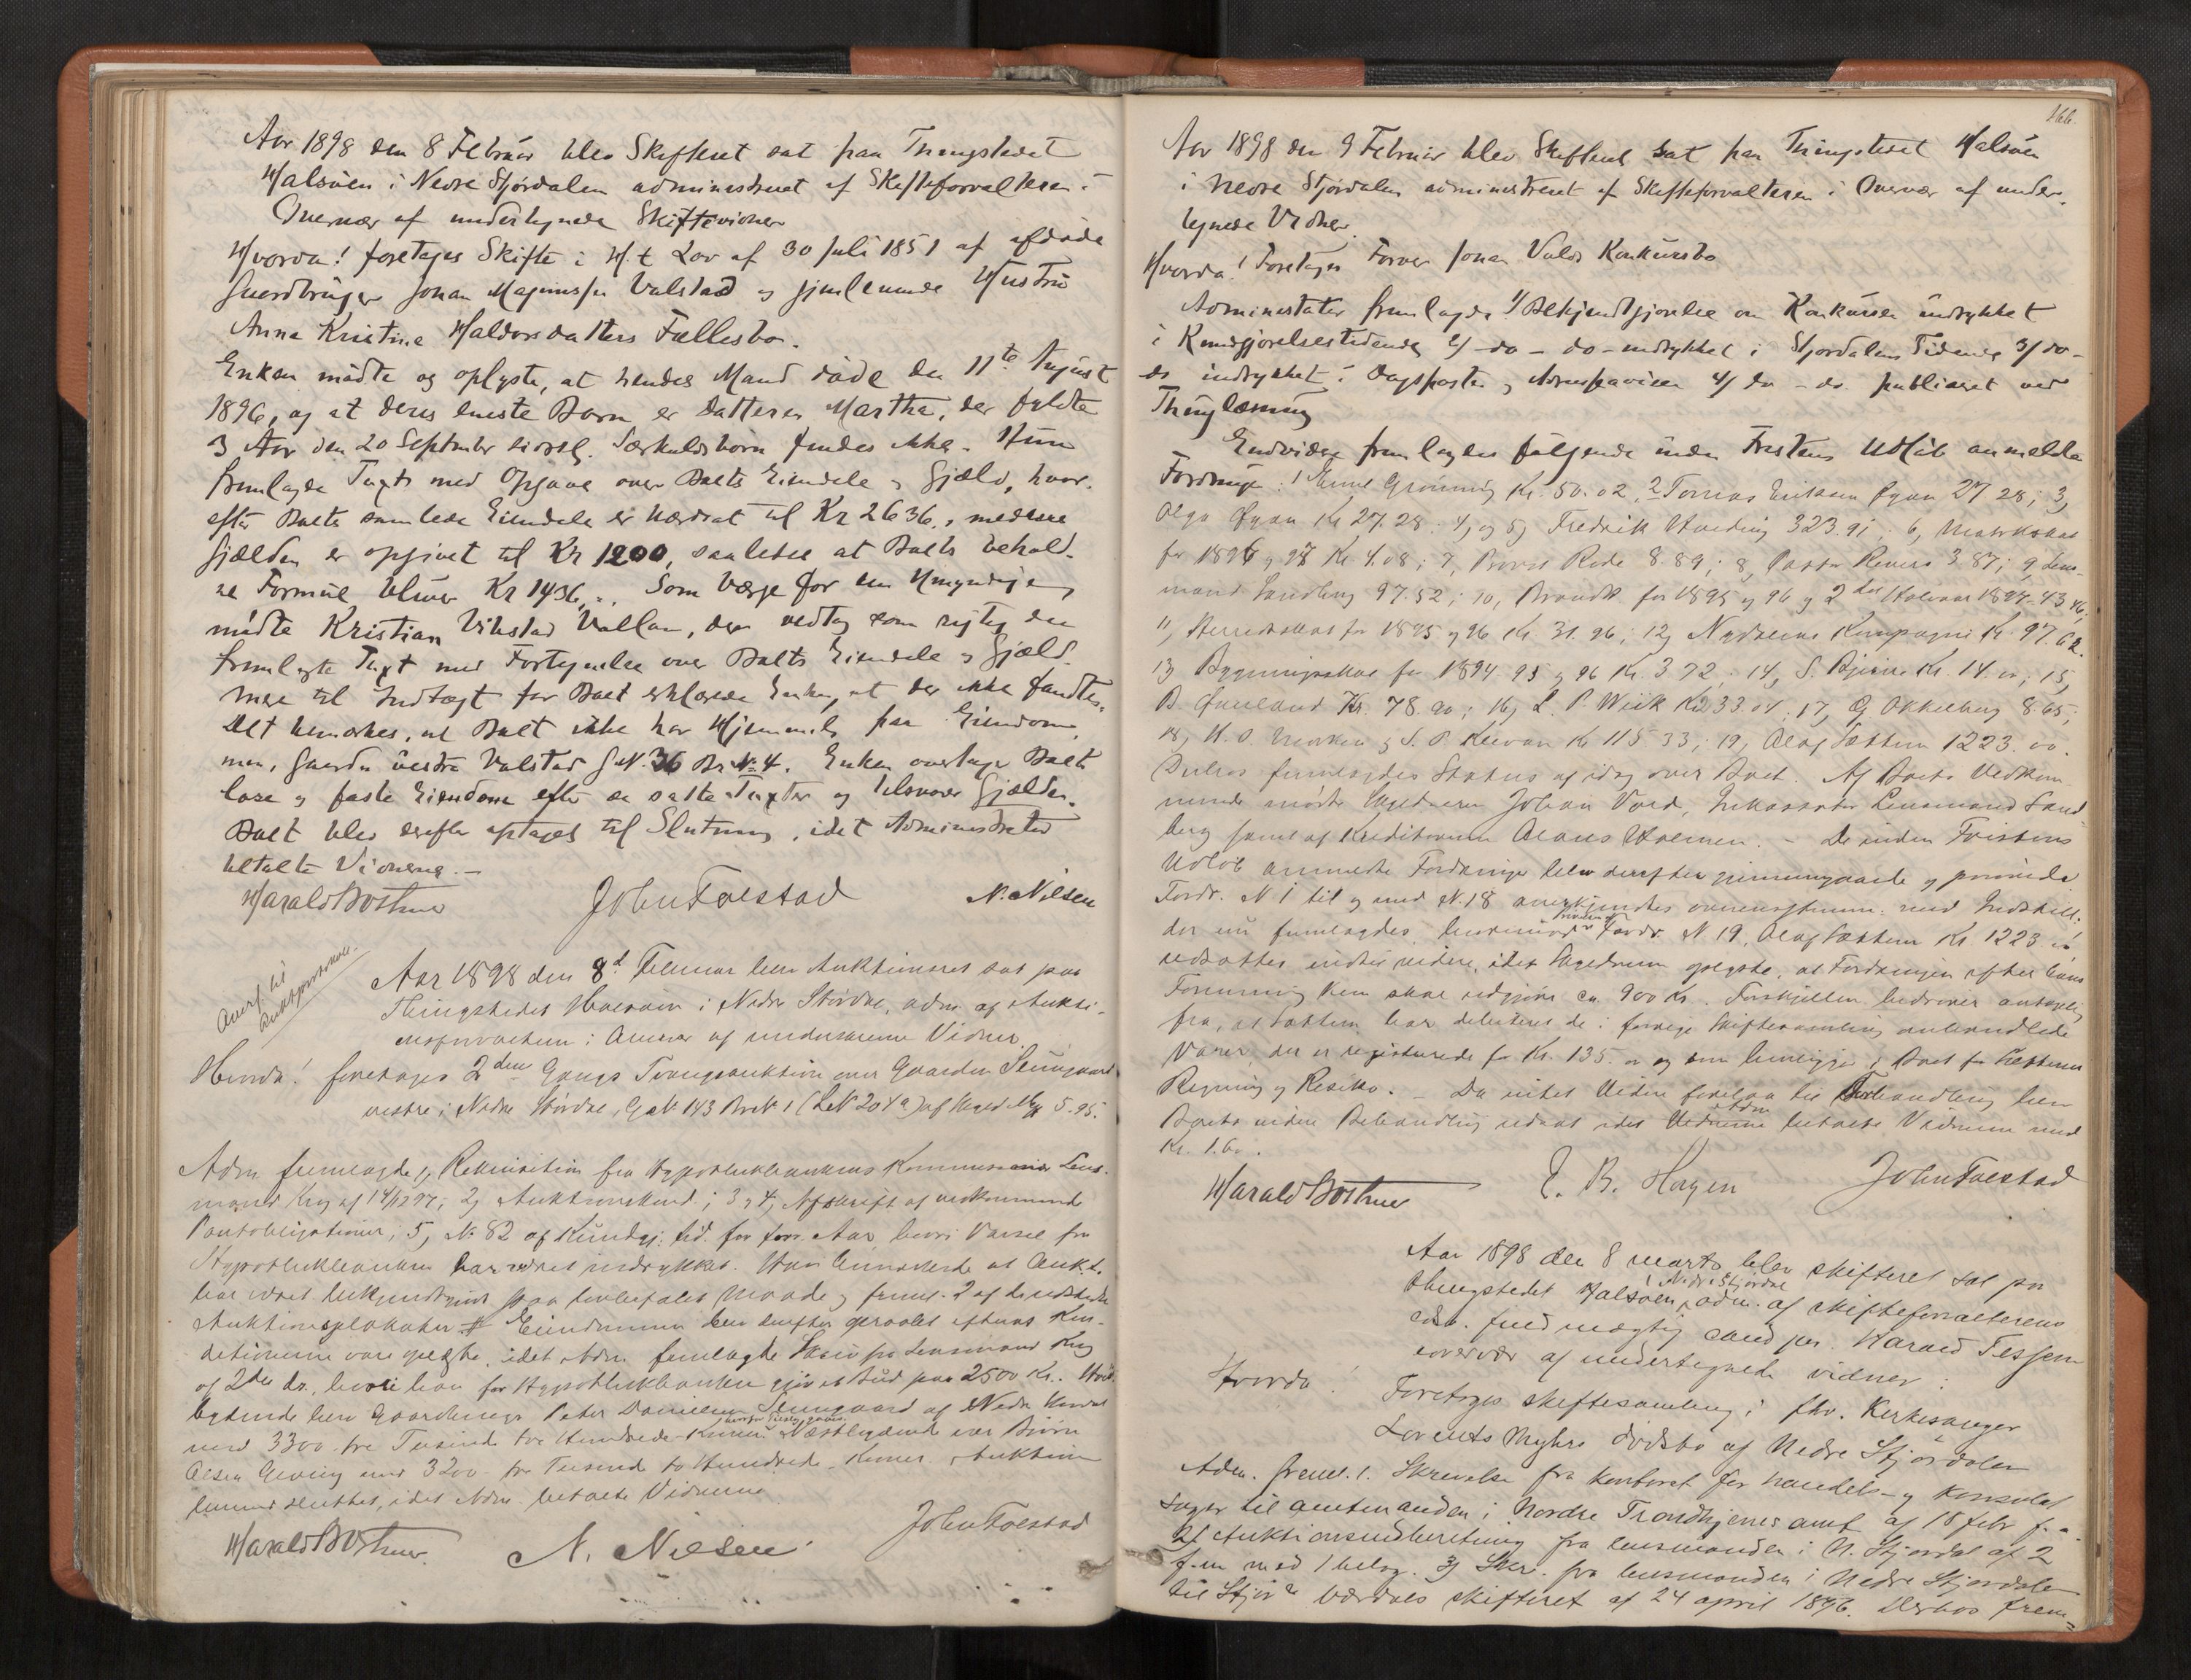 Aar 1898 den 8 Februar blev Skifteret sat paa Thingstedet
Halsöen i Nedre Stjördalen administreret af Skifteforvalteren i
Overvær af undertegnede Skiftevidner
Hvorda! foretages Skifte i H. t Lov af 30 Juli 1851 af afdöde
Gaardbruger Johan Magnussen Valstad og gjenlevende Hustru
Anna Kristine Haldorsdatters Fællesbo.
Enken mödte og oplyste, at hendes Mand döde den 11te August
1896, og at deres eneste Barn er Datteren Martha, der fyldte
3 Aar den 20 September sidstl. Særkuldsbörn findes ikke. Hun
fremlagde Taxt med Opgave over Boets Eiendele og Gjæld, hvor-
efter Boets samlede Eiendele er værdsat til Kr 2636,, medens
Gjælden er opgivet til Kr 1200, saaledes at Boets behold-
ne Formue bliver Kr 1436,,. Som Værge for den Umyndige
mödte Kristian Vikstad Vollan, der vedtog som rigtig den
fremlagte Taxt med Fortegnelse over Boets Eiendele og Gjæld.
Mere til Indtægt for Boet erklærede Enken, at der ikke fandtes.
Det bemærkes, at Boet ikke har Hjemmel paa Eiendom-
men, Gaarden östre Valstad G.N. 36 Br.N. 4. Enken overtager Boets
löse og faste Eiendom efter de satte Taxter og tilsvarer Gjælden.
Boet blev derefter optaget til Slutning, idet Administrator
betalte Vidnerne.—
Harald Bothner John Foestad N. Nilsen
Overf. til
Auktsprotokol.
Aar 1898 den 8d Februar blev Auktionsret sat paa
Thingstedet Halsöen i Nedre Stördal, adm. af Aukti-
onsforvalteren i Overvær af underskrevne Vidner.
Hvorda! foretages 2den Gangs Tvangsauktion over Gaarden
vestre i Nedre Stördal, G.N. 143 Br.N. 1 (L.N. 204a) af Skyld Mk 5.95.
Adm. fremlagde 1, Rekvisition fra Hypothekbankens Kommissionær Lens-
mand Krog af 14/12 97; 2, Auktionskund.; 3 & 4, Afskrift af vedkommende
Pantobligationer; 5, N. 82 af Kundgj. tid. for forr. Aar, hvori Varsel fra
Hypothekbanken har været indrykket. Han bemærkede at Aukt.
har været bekjendtgjort paa lovbefalet Maade og freml. 2 af de udstedte
Auktionsplakater. Eiendommen blev derefter opraabt efterat Kon-
ditionerne vare oplæste, idet Adm. fremlagde Skriv fra Lensmand Krog
af 2den ds., hvori han for Hypothekbanken gjör et Bud paa 2500 Kr. Höist-
bydende blev Gaardbruger Peter Danielsen af Nedre
med 3300 tre Tusinde tre Hundrede Kroner. Næstbydende var Björn
Olsen Geving med 3200 tre Tusinde to Hundrede Kroner. Auktion
hermed sluttet, idet Adm. betalte Vidnerne
Harald Bothner. N. Nilsen John Foestad
166.
Aar 1898 den 9 Februar blev Skifteret sat paa Thingstedet Halsöen
i Nedre Stjördalen administreret af Skifteforvalteren i Overvær af under-
tegnede Vidner.
Hvorda! Foretages Farver Johan Volds Konkursbo
Administrator fremlagde 1/ Bekjendtgjörelse om Konkursen indrykket
i Kundgjörelsestidende 2/ do – do – indrykket i Stjördalens Tidende 3/ do –
do indrykket i Dagsposten og Adresseavisen 4/ do – do. publiceret ved
Thinglæsning
Endvidere fremlagdes fölgende inden Fristens Udlöb anmeldte
Fordringer: 1 Grönning Kr. 50.02, 2 Tomas Eriksen Öyan 27 28; 3,
Olga Öyan Kr 27.28; 4, og 5, Fredrik 323.91; 6,
for 1896 og 97 Kr 4.08; 7, Rode 8.89; 8, Pastor 3 87; 9 Lens-
mand Sandberg 97.52; 10, for 1895 og 96 og 2det Halvaar 1894 43 46;
11, Herredsskat for 1895 og 96 Kr 31.96; 12, Nydalens Kompagni Kr. 97 62.
13, Bygningsskat for 1894. 95 og 96 Kr. 3 72; 14, S. Kr. 14. 00; 15,
B. Kr. 78 90; 16, L. P. Wiik Kr 233.04; 17, G. Okkelberg 8.65;
18, H. O. og S. P. Kr 115.33; 19, Olaf Sættem 1223. 00.
fremlagdes Status af idag over Boet. Af Boets Vedkom-
mende mödte Johan Vold, Inkassator Lensmand Sand-
berg samt af Kreditorerne Holmen. – De inden Fristens
Udlöb anmeldte Fordringer blev derefter gjennemgaaede og prövede
Fordr. N 1 til og med N. 18 anerkjendtes overensstemm. med Indstill.
der nu fremlagdes, hvorimod Pröven af Fordr. N 19, Olaf Sættem Kr. 1223 00
udsattes indtil videre, idet oplyste, at Fordringen efter hans
Formening kun skal udgjöre ca 900 Kr. Forskjellen hidrörer antagelig
fra, at Sættem har debiteret de i forrige Skiftesamling omhandlede
Varer der er registrerede for Kr. 135. 00 og som henligger i Boet for Sættems
Regning og Resiko. – Da intet videre forelaa til Forhandling blev
Boets videre Behandling udsat idet Adm betalte Vidnerne med
Kr. 1.60.
Harald Bothner E. B. Hagen John Foestad
Aar 1898 den 8 marts blev skifteret sat paa
thingstedet Halsöen, Nedre Stjördal adm. af skifteforvalterens
edsv. fuldmægtig cand jur. Harald Tessem
i overvær af undertegnede vidner:
Hvorda! Foretages skiftesamling i fhv. Kirkesanger
Lorents Myhrs dödsbo af Nedre Stjördalen
Adm. freml. 1. Skrivelse fra kontoret for handels- og konsulat
sager til amtmanden i Nordre Trondhjems amt af 15 febr f. a.
2, Auktionsindberetning fra lensmanden i N. Stjördal af 2
f. m med 1 belæg. 3, Skr. fra lensmanden i Nedre Stjördalen
til Stjör & Værdals skifteret af 24 april 1896. Derhos frem-